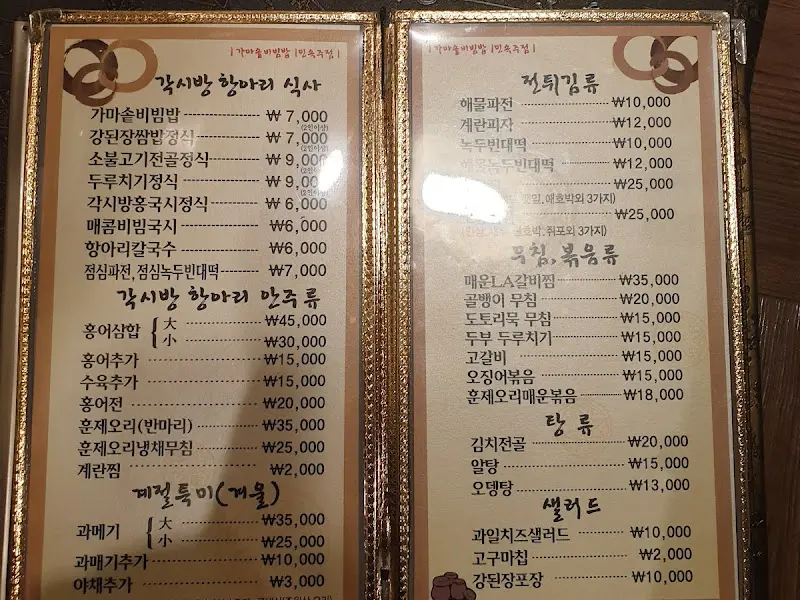 |가마솥비빔밥 |민속주점|
각시방 항아리 식사
가마솥비빔밥 ₩ 7,000
강된장쌈밥정식 ₩ 7,000
(2인이상)
소불고기전골정식 ₩ 9,000
(2인이상)
두루치기정식 ₩ 9,000
(2인이상)
각시방홍국시정식 ₩ 6,000
매콤비빔국시 ₩6,000
항아리칼국수 ₩6,000
점심파전, 점심녹두빈대떡 ₩7,000
각시방 항아리 안주류
홍어삼합 { 大 ₩45,000
小 ₩30,000
홍어추가 ₩15,000
수육추가 ₩15,000
홍어전 ₩20,000
훈제오리(반마리) ₩35,000
훈제오리냉채무침 ₩25,000
계란찜 ₩2,000
계절특미(겨울)
과메기 { 大 ₩35,000
小 ₩25,000
과매기추가 ₩10,000
야채추가 ₩3,000
|가마솥비빔밥 |민속주점|
전튀김류
해물파전 ₩10,000
계란피자 ₩12,000
녹두빈대떡 ₩10,000
해물녹두빈대떡 ₩12,000
₩25,000
깻잎, 애호박외 3가지)
₩25,000
애호박, 쥐포외 3가지)
무침,볶음류
매운LA갈비찜 ₩35,000
골뱅이 무침 ₩20,000
도토리묵 무침 ₩15,000
두부 두루치기 ₩15,000
고갈비 ₩15,000
오징어볶음 ₩15,000
훈제오리매운볶음 ₩18,000
탕 류
김치전골 ₩20,000
알탕 ₩15,000
오뎅탕 ₩13,000
샐러드
과일치즈샐러드 ₩10,000
고구마칩 ₩2,000
강된장포장 ₩10,000